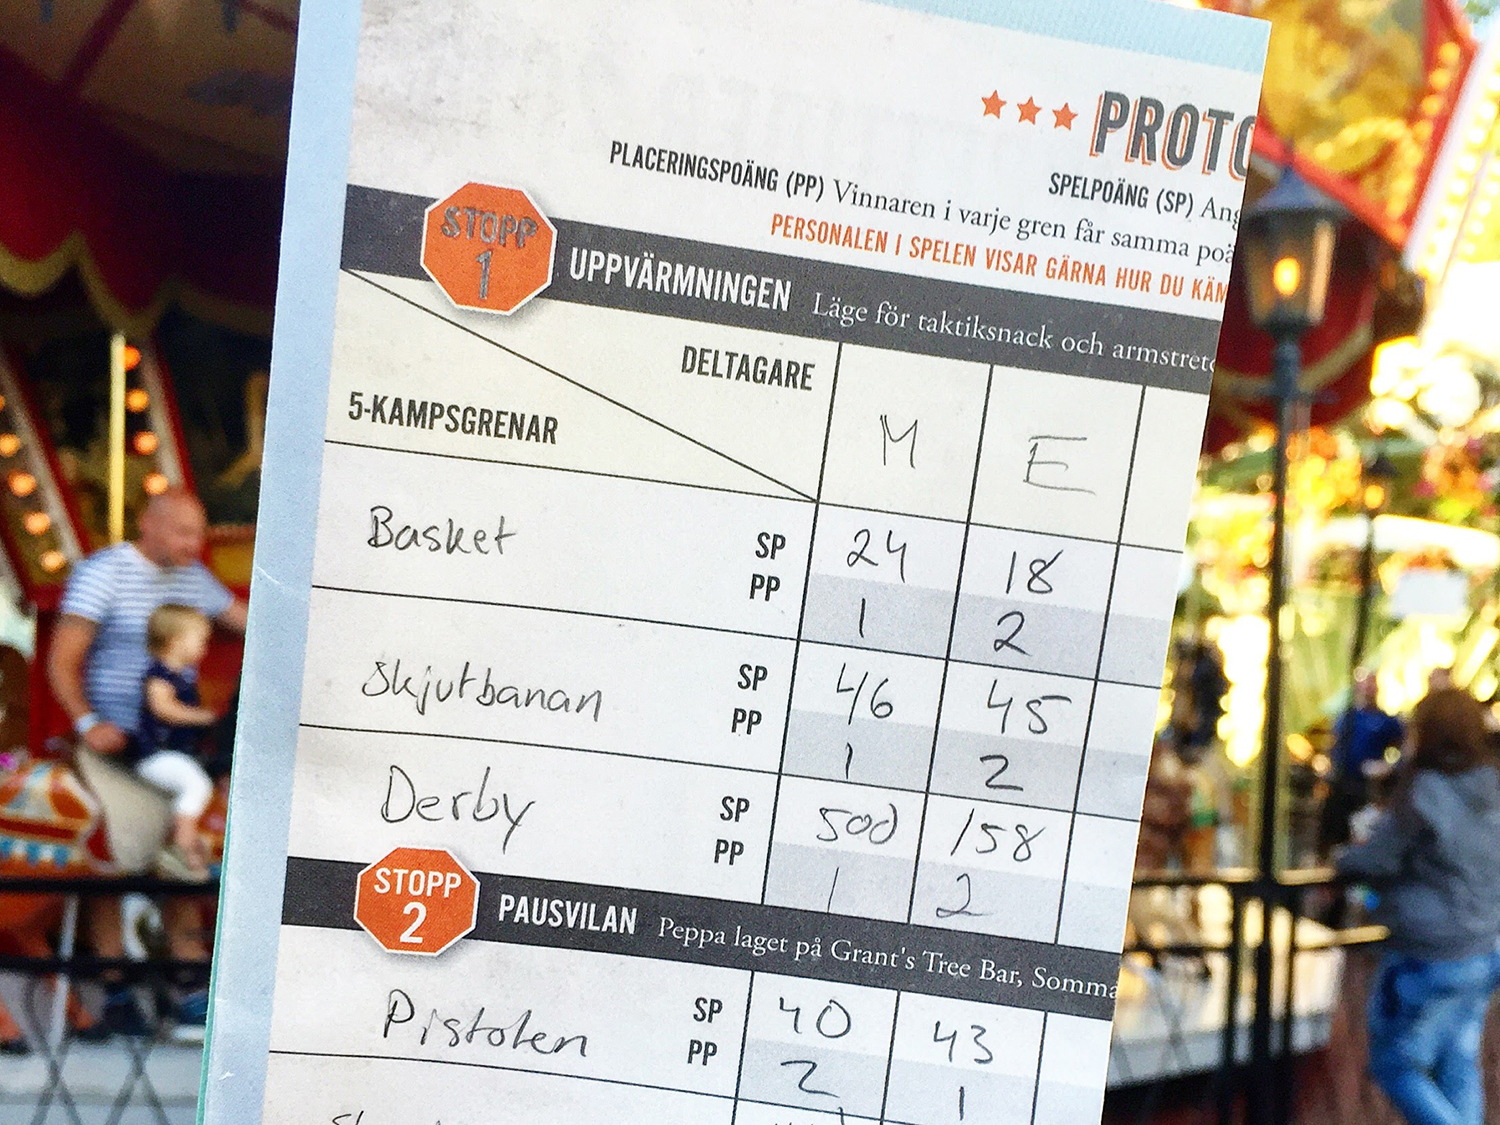 PROTO
PLACERINGSPOÄNG (PP) Vinnaren i varje gren får samma
SPELPOÄNG (SP)
PERSONALEN I SPELEN VISAR GÄRNA HUR DU
STOPP 1 UPPVÄRMNINGEN Läge för taktiksnack och
DELTAGARE M E
5-KAMPSGRENAR
Basket SP 24 18
PP 1 2
Skjutbanan SP 46 45
PP 1 2
Derby SP 500 158
PP 1 2
STOPP 2 PAUSVILAN Peppa laget på Grant's Tree Bar,
Pistolen SP 40 43
PP 2 1